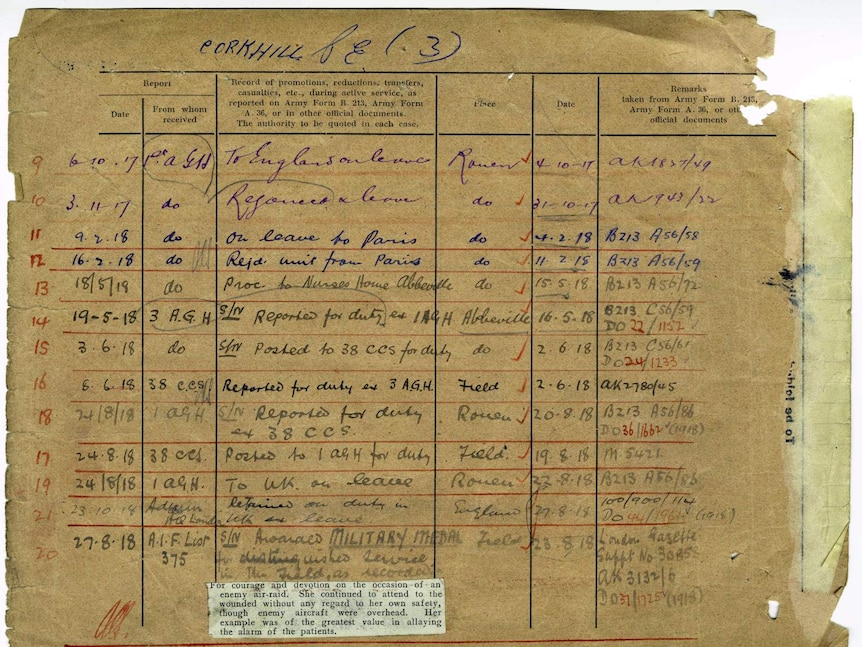 CORKHILL P E (. 3)
Report
Record of promotions, reductions, transfers, casualties, etc., during active service, as reported on Army Form B. 213, Army Form A. 36, or in other official documents. The authority to be quoted in each case.
Place
Date
Remarks taken from Army Form B. 213, Army Form A. 36, or official documents
Date
From whom received
9 6-10.17 1st A G H To England on leave Rouen 4-10-17 AK1837/49
10 3.11-17 do Rejoined x leave do 31-10-17 AK 943/22
11 9.2.18 do On leave to Paris do 4.2.18 B213 A56/58
12 16.2.18 do Rejd. unit from Paris do 11.2.18 B213 A56/59
13 18/5/18 do Proc. to Nurses Home Abbeville do 15.5.18 B213 A56/72
14 19-5-18 3 A.G.H S/N Reported for duty ex 1 AGH Abbeville 16.5.18 B213 C56/59
DO 22/1152
15 3.6.18 do S/N Posted to 38 CCS for duty do 2.6.18 B213 C56/61
DO 24/1233
16 6.6.18 38 CCS Reported for duty ex 3 A.G.H. Field 2.6.18 AK2780/45
18 24/8/18 1 AGH S/N Reported for duty Rouen 20.8.18 B213 A56/86
ex 38 CCS. DO36/1662 (1918)
17 24.8.18 38 CCS. Posted to 1 AGH for duty Field. 19.8.18 M.5421
19 24/8/18 1 AGH. To UK. on leave Rouen 22.8.18 B213 A56/86
21 23.10.18 Admin retained on duty in England 27.8.18 100/900/114
Hq London UK ex leave DO (1918)
20 27.8.18 A.I.F. List S/N Awarded MILITARY MEDAL Field 23.8.18 London Gazette
375 for distinguished service Suppt No
in the Field, as recorded AK 3132/6
DO37/1725 (1918)
For courage and devotion on the occasion of an
enemy air-raid. She continued to attend to the
wounded without any regard to her own safety,
though enemy aircraft were overhead. Her
example was of the greatest value in allaying
the alarm of the patients.
To be